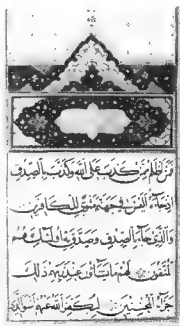 فَمَنْ أَظْلَمُ مِمَّنْ كَذَبَ عَلَى اللَّهِ وَكَذَّبَ بِالصِّدْقِ
إِذْ جَاءَهُ أَلَيْسَ فِي جَهَنَّمَ مَثْوًى لِلْكَافِرِينَ
وَالَّذِي جَاءَ بِالصِّدْقِ وَصَدَّقَ بِهِ أُولَئِكَ هُمُ
الْمُتَّقُونَ لَهُمْ مَا يَشَاؤُنَ عِنْدَ رَبِّهِمْ ذَلِكَ
جَزَاءُ الْمُحْسِنِينَ لِيُكَفِّرَ اللَّهُ عَنْهُمْ أَسْوَأَ الَّذِي